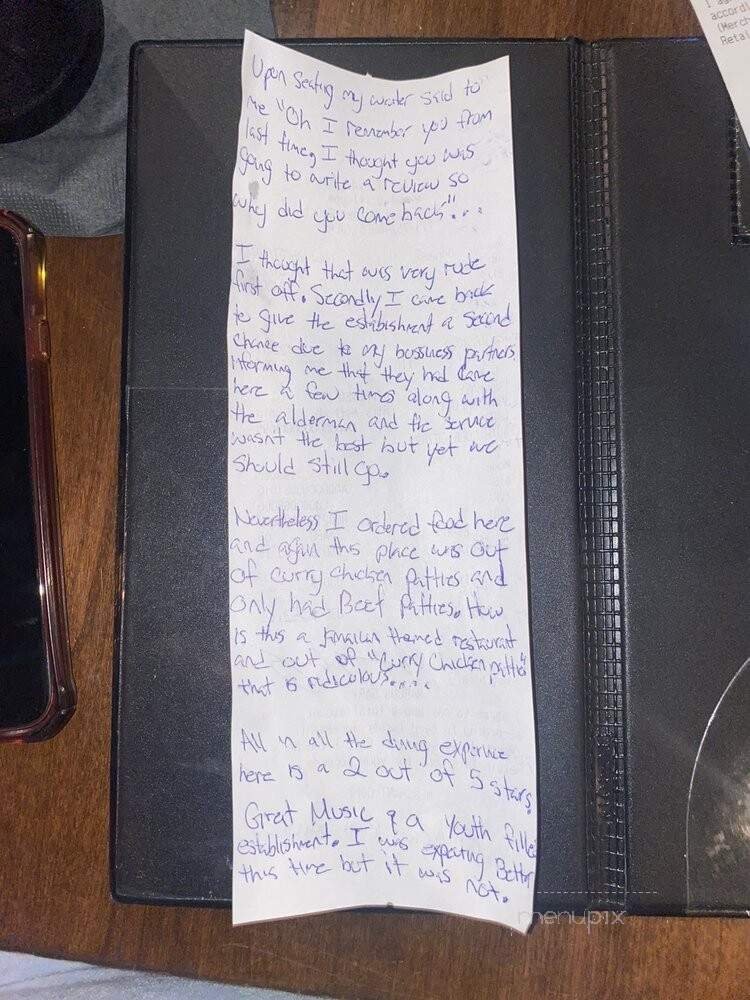 Upon seating my waiter said to
me "Oh I remember you from
last time, I thought you was
going to write a review so
why did you come back"...
I thought that was very rude
first off. Secondly I came back
to give the establishment a second
chance due to my bussiness partners
informing me that they had came
here a few times along with
the alderman and the service
wasn't the best but yet we
should still go.
Nevertheless I ordered food here
and again this place was out
of curry chicken patties and
only had Beef Patties. How
is this a Jamaican themed restaurant
and out of "Curry Chicken patties"
that is ridiculous.....
All in all the dining experience
here is a 2 out of 5 stars.
Great Music & a Youth filled
establishment. I was expecting Better
this time but it was not.
accord
(Merch
Retai
menupix